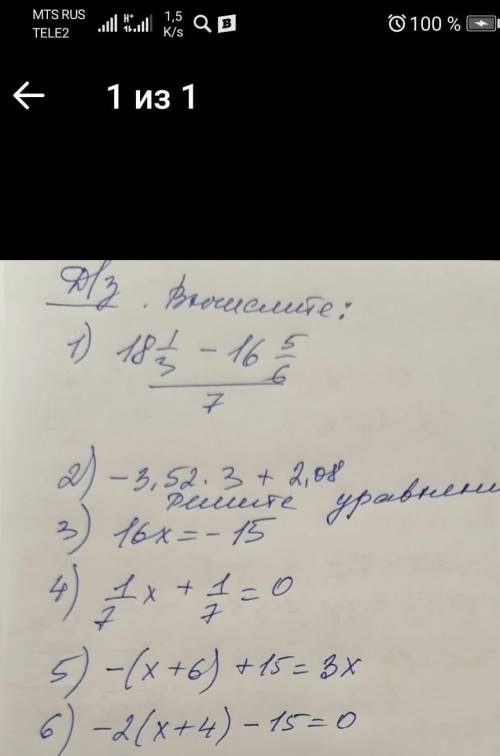 MTS RUS
TELE2
H+
1,5
K/s
B
100 %
1 из 1
Д/з. Вычислите:
1) (18 1/3 - 16 5/6)/7
2) -3,52 · 3 + 2,08
Решите уравнени
3) 16x = -15
4) 1/7 x + 1/7 = 0
5) -(x+6) + 15 = 3x
6) -2(x+4) - 15 = 0